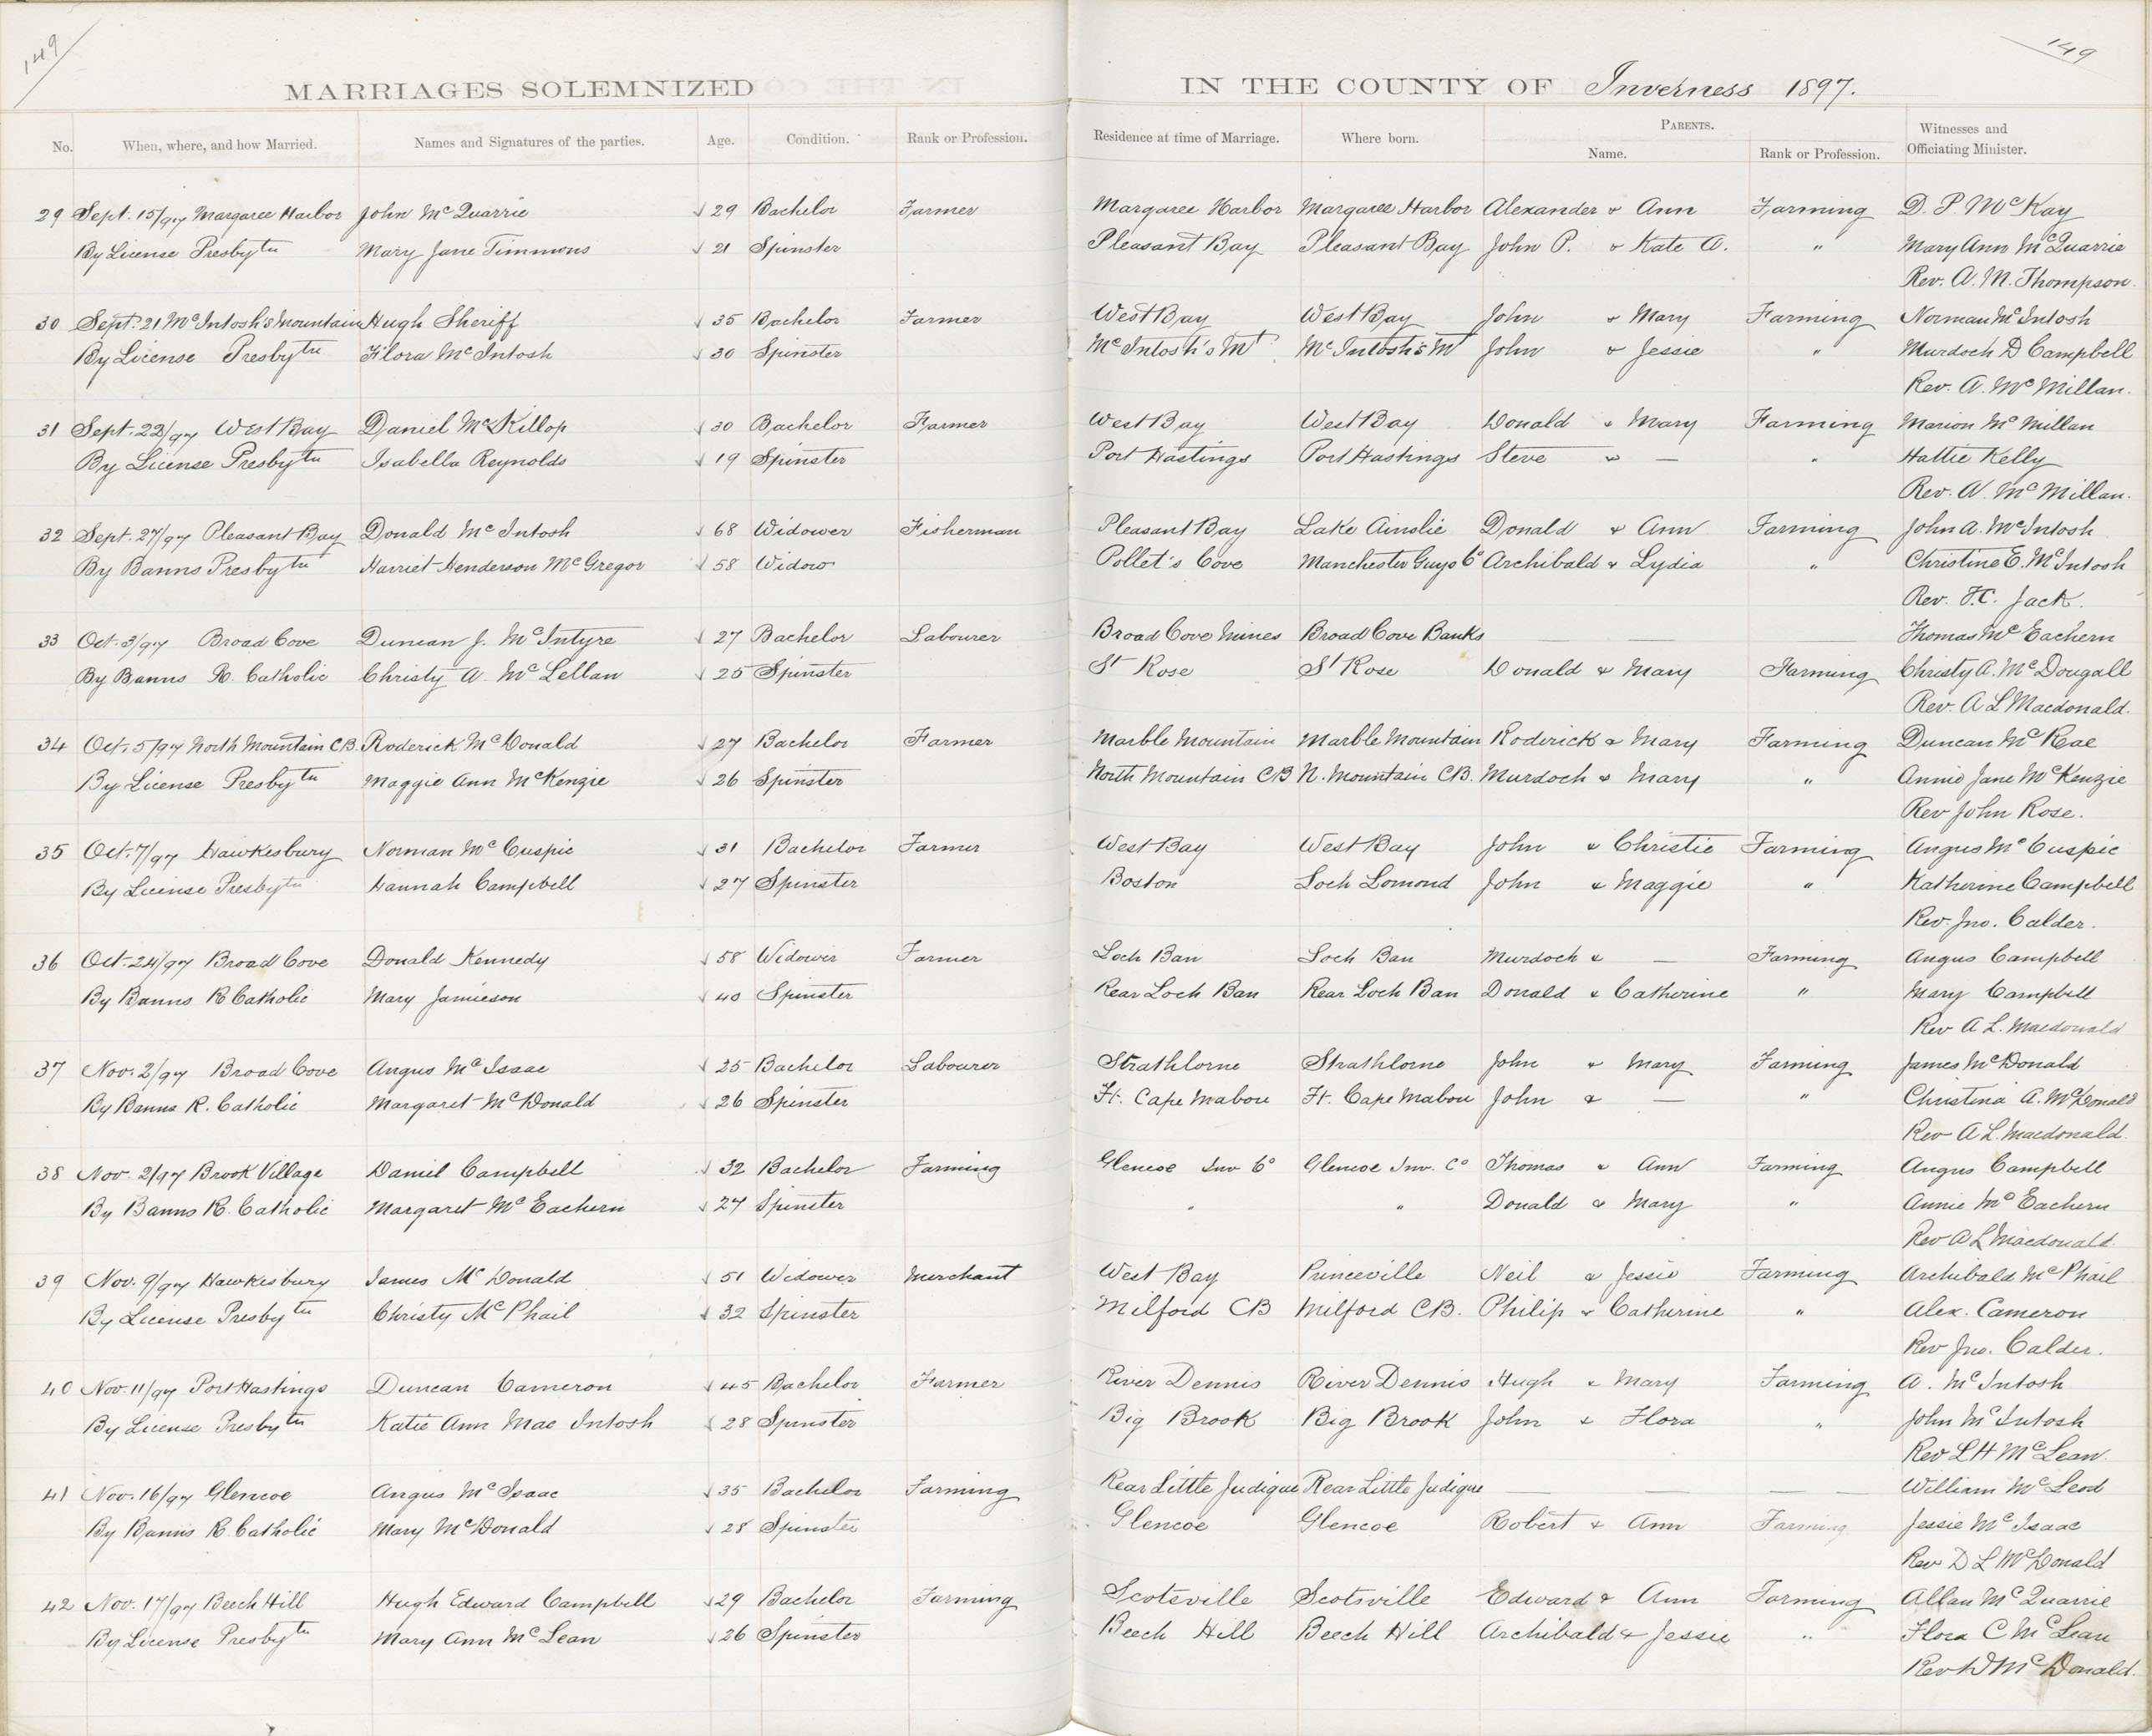 149
149
MARRIAGES SOLEMNIZED IN THE COUNTY OF Inverness 1897.
No. When, where, and how Married. Names and Signatures of the parties. Age. Condition. Rank or Profession. Residence at time of Marriage. Where born. PARENTS. Name. Rank or Profession. Witnesses and Officiating Minister.
29 Sept. 15/97 Margaree Harbor John McQuarrie 29 Bachelor Farmer Margaree Harbor Margaree Harbor Alexander & Ann Farming D. P. McKay
By License Presbytn Mary Jane Timmons 21 Spinster Pleasant Bay Pleasant Bay John P. & Kate A. " Mary Ann McQuarrie
Rev. A. M. Thompson.
30 Sept. 21 McIntosh's Mountain Hugh Sheriff 35 Bachelor Farmer West Bay West Bay John & Mary Farming Norman McIntosh
By License Presbytn Flora McIntosh 30 Spinster McIntosh's Mt McIntosh's Mt John & Jessie " Murdoch D Campbell
Rev. A. McMillan.
31 Sept. 22/97 West Bay Daniel McKillop 30 Bachelor Farmer West Bay West Bay Donald & Mary Farming Marion McMillan
By License Presbytn Isabella Reynolds 19 Spinster Port Hastings Port Hastings Steve & — " Hattie Kelly
Rev. A. McMillan.
32 Sept. 27/97 Pleasant Bay Donald McIntosh 68 Widower Fisherman Pleasant Bay Lake Ainslie Donald & Ann Farming John A. McIntosh
By Banns Presbytn Harriet Henderson McGregor 58 Widow Pollet's Cove Manchester Guys Co Archibald & Lydia " Christine E. McIntosh
Rev. F.C. Jack.
33 Oct. 3/97 Broad Cove Duncan J. McIntyre 27 Bachelor Labourer Broad Cove Mines Broad Cove Banks — — — Thomas McEachern
By Banns R. Catholic Christy A. McLellan 25 Spinster St Rose St Rose Donald & Mary Farming Christy A. McDougall
Rev. A L Macdonald.
34 Oct. 5/97 North Mountain C.B. Roderick McDonald 27 Bachelor Farmer Marble Mountain Marble Mountain Roderick & Mary Farming Duncan McRae
By License Presbytn Maggie Ann McKenzie 26 Spinster North Mountain CB N. Mountain C.B. Murdoch & Mary " Annie Jane McKenzie
Rev John Rose.
35 Oct. 7/97 Hawkesbury Norman McCuspic 31 Bachelor Farmer West Bay West Bay John & Christie Farming Angus McCuspic
By License Presbytn Hannah Campbell 27 Spinster Boston Loch Lomond John & Maggie " Katherine Campbell
Rev. Jno. Calder.
36 Oct. 24/97 Broad Cove Donald Kennedy 58 Widower Farmer Loch Ban Loch Ban Murdoch & — Farming Angus Campbell
By Banns R Catholic Mary Jamieson 40 Spinster Rear Loch Ban Rear Loch Ban Donald & Catherine " Mary Campbell
Rev A L. Macdonald
37 Nov. 2/97 Broad Cove Angus McIsaac 25 Bachelor Labourer Strathlorne Strathlorne John & Mary Farming James McDonald
By Banns R. Catholic Margaret McDonald 26 Spinster Ft. Cape Mabou Ft. Cape Mabou John & — " Christina A. McDonald
Rev A L. Macdonald.
38 Nov. 2/97 Brook Village Daniel Campbell 32 Bachelor Farming Glencoe Inv Co Glencoe Inv. Co Thomas & Ann Farming Angus Campbell
By Banns R. Catholic Margaret McEachern 24 Spinster " " Donald & Mary " Annie McEachern
Rev A L Macdonald
39 Nov. 9/97 Hawkesbury James McDonald 51 Widower Merchant West Bay Princeville Neil & Jessie Farming Archibald McPhail
By License Presbytn Christy McPhail 32 Spinster Milford CB Milford CB. Philip & Catherine " Alex. Cameron
Rev Jno. Calder.
40 Nov. 11/97 Port Hastings Duncan Cameron 45 Bachelor Farmer River Dennis River Dennis Hugh & Mary Farming A. McIntosh
By License Presbytn Katie Ann Mac Intosh 28 Spinster Big Brook Big Brook John & Flora " John McIntosh
Rev L H McLean.
41 Nov. 16/97 Glencoe Angus McIsaac 35 Bachelor Farming Rear Little Judique Rear Little Judique — — — — William McLeod
By Banns R Catholic Mary McDonald 28 Spinster Glencoe Glencoe Robert & Ann Farming Jessie McIsaac
Rev D L McDonald
42 Nov. 17/97 Beech Hill Hugh Edward Campbell 29 Bachelor Farming Scotsville Scotsville Edward & Ann Farming Allan McQuarrie
By License Presbytn Mary Ann McLean 26 Spinster Beech Hill Beech Hill Archibald & Jessie " Flora C McLean
Rev D McDonald.